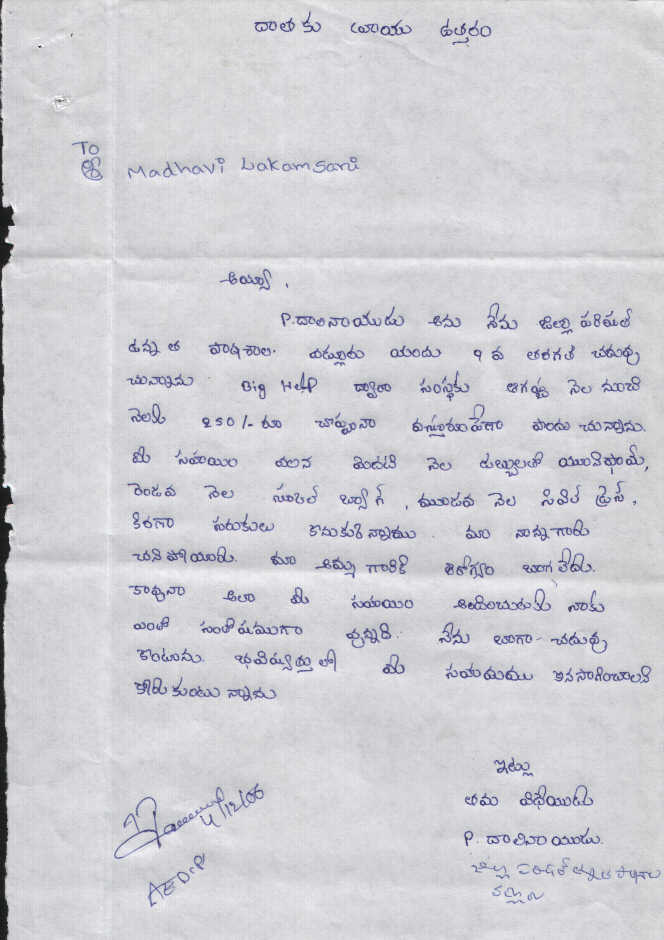 దాతకు వ్రాయు ఉత్తరం
To
శ్రీ Madhavi Lakamsani
ఆయ్యా,
P. దాలినాయుడు అను నేను జిల్లా పరిషత్
ఉన్నత పాఠశాల. వల్లూరు యందు 9 వ తరగతి చదువు
చున్నాను. Big Help ద్వారా సంస్థకు ఆగష్టు నెల నుంచి
నెలకి 250/- రూ చొప్పునా పొందు చున్నాను.
మీ సహాయం వలన మొదటి నెల డబ్బులతో యూనిఫాం,
రెండవ నెల స్కూల్ బ్యాగ్, మూడవ నెల సివిల్ డ్రెస్,
కిరాణా సరుకులు కొనుకున్నాము. మా నాన్న గారు
చనిపోయారు. మా అమ్మ గారికి ఆరోగ్యం బాగ లేదు.
కావునా అలా మీ సహయం అందించుటకు నాకు
ఎంతో సంతోషముగా వున్నది. నేను బాగా చదువు
కొంటాను. భవిష్యత్తులో మీ సహయము కొనసాగించాలని
కోరుకుంటున్నాను
ఇట్లు
తమ విధేయుడు
P. దాలినాయుడు.
జిల్లా పరిషత్ ఉన్నత పాఠశాల
4/12/06
AEDP